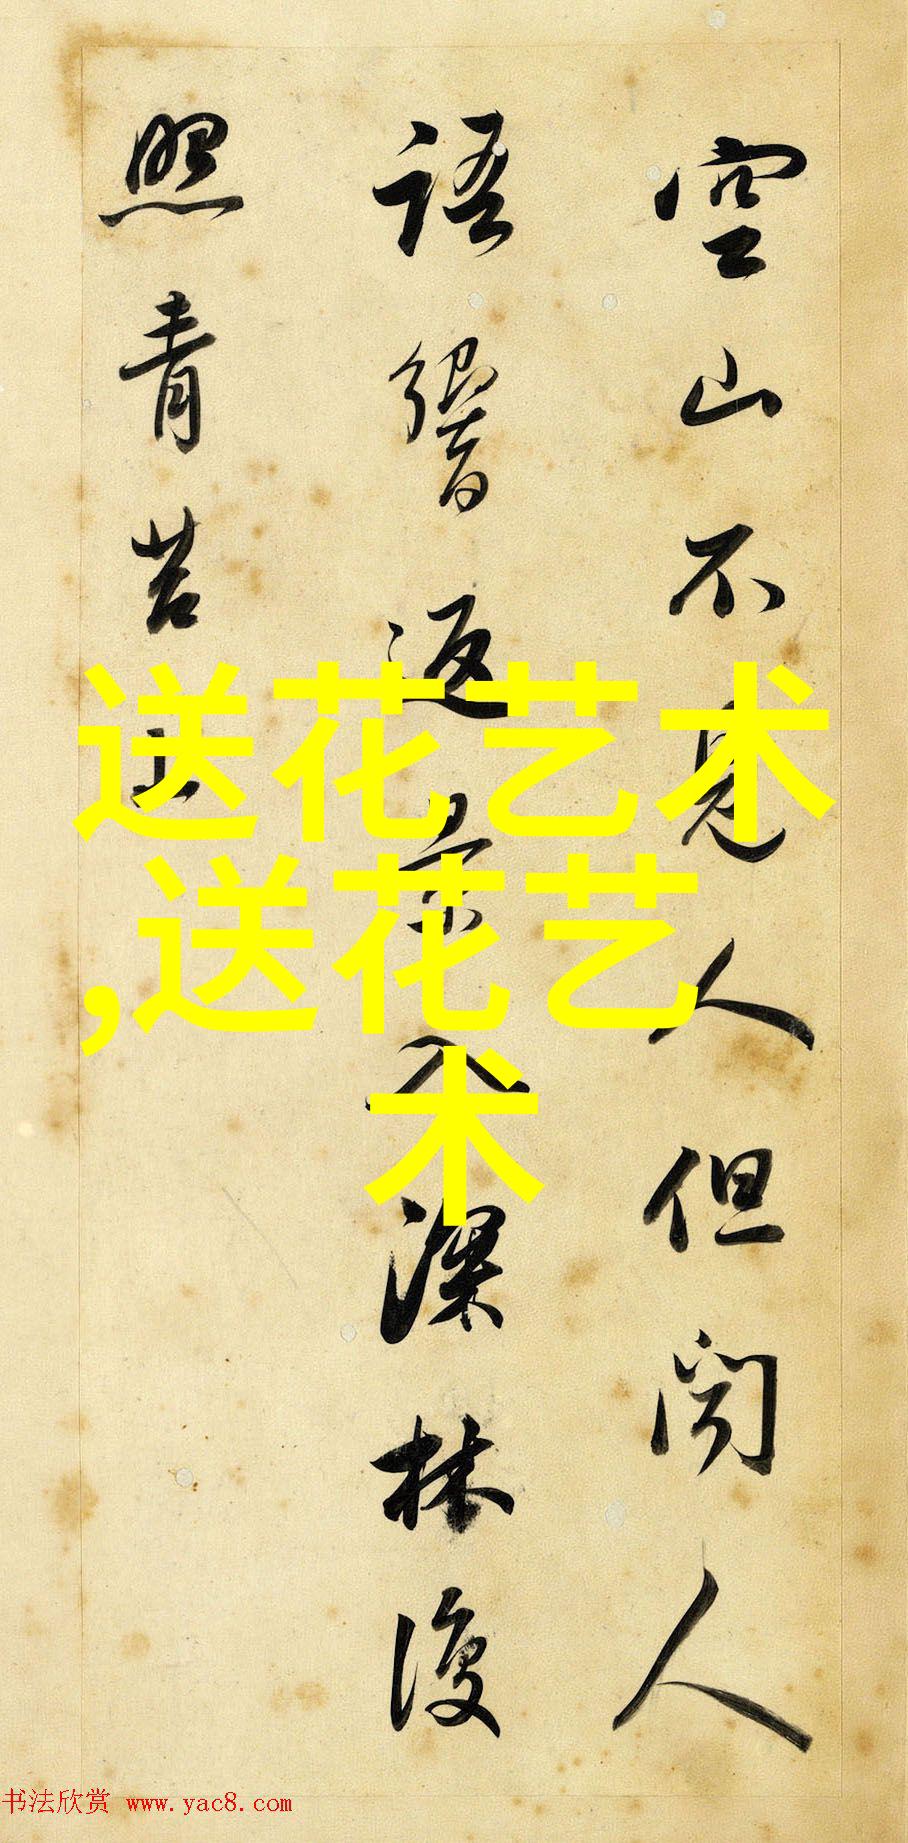 空山不見人但聞人
語響返景入深林復
照青苔上
送花艺术
,送花艺
术
书法欣赏 www.yac8.com